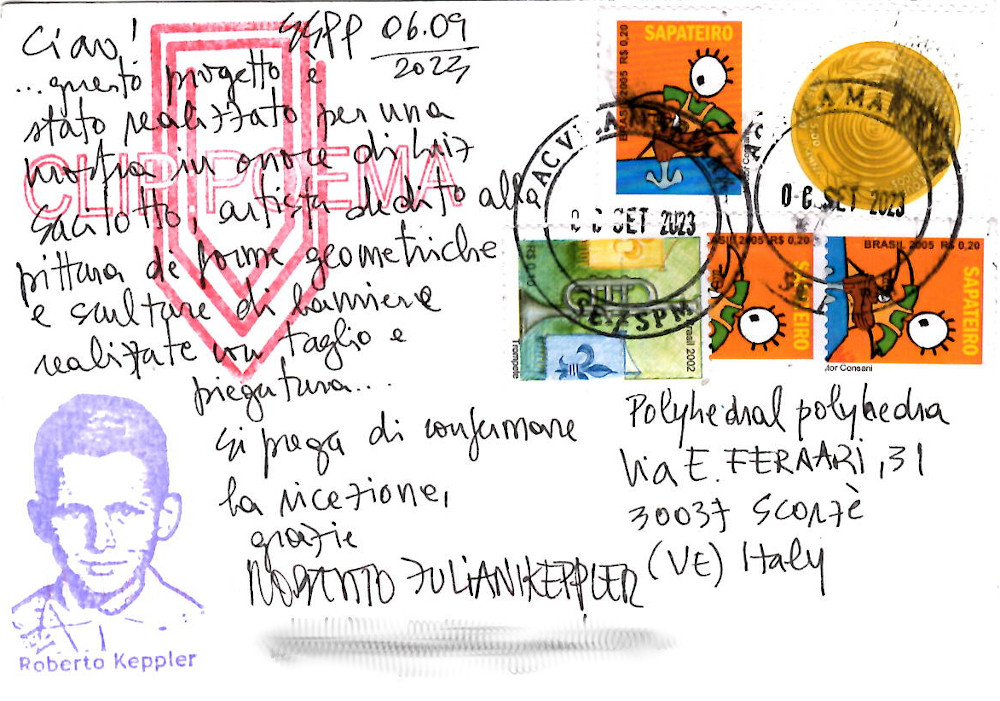 Ciao!
SSPP 06.09
2023
...questo progetto è
stato realizzato per una
mostra in onore di Luiz
Sacilotto, artista dedito alla
pittura di forme geometriche
e sculture di lamiere
realizzate con taglio e
piegatura...
Si prega di confermare
la ricezione,
grazie
ROBERTO JULIANIKEPPLER
CLIP POEMA
Roberto Keppler
SAPATEIRO
BRASIL 2005 R$ 0,20
AC VILA MA
06 SET 2023
SE/SPM
LA MA
0-6 SET 2023
Trompete
Brasil 2002
ASIL 2005 R$ 0,20
SAPATEIRO
BRASIL 2005 R$ 0,20
SAPATEIRO
tor Consani
Polyhedral polyhedra
Via E. FERRARI, 31
30037 Scorzè
(VE) Italy